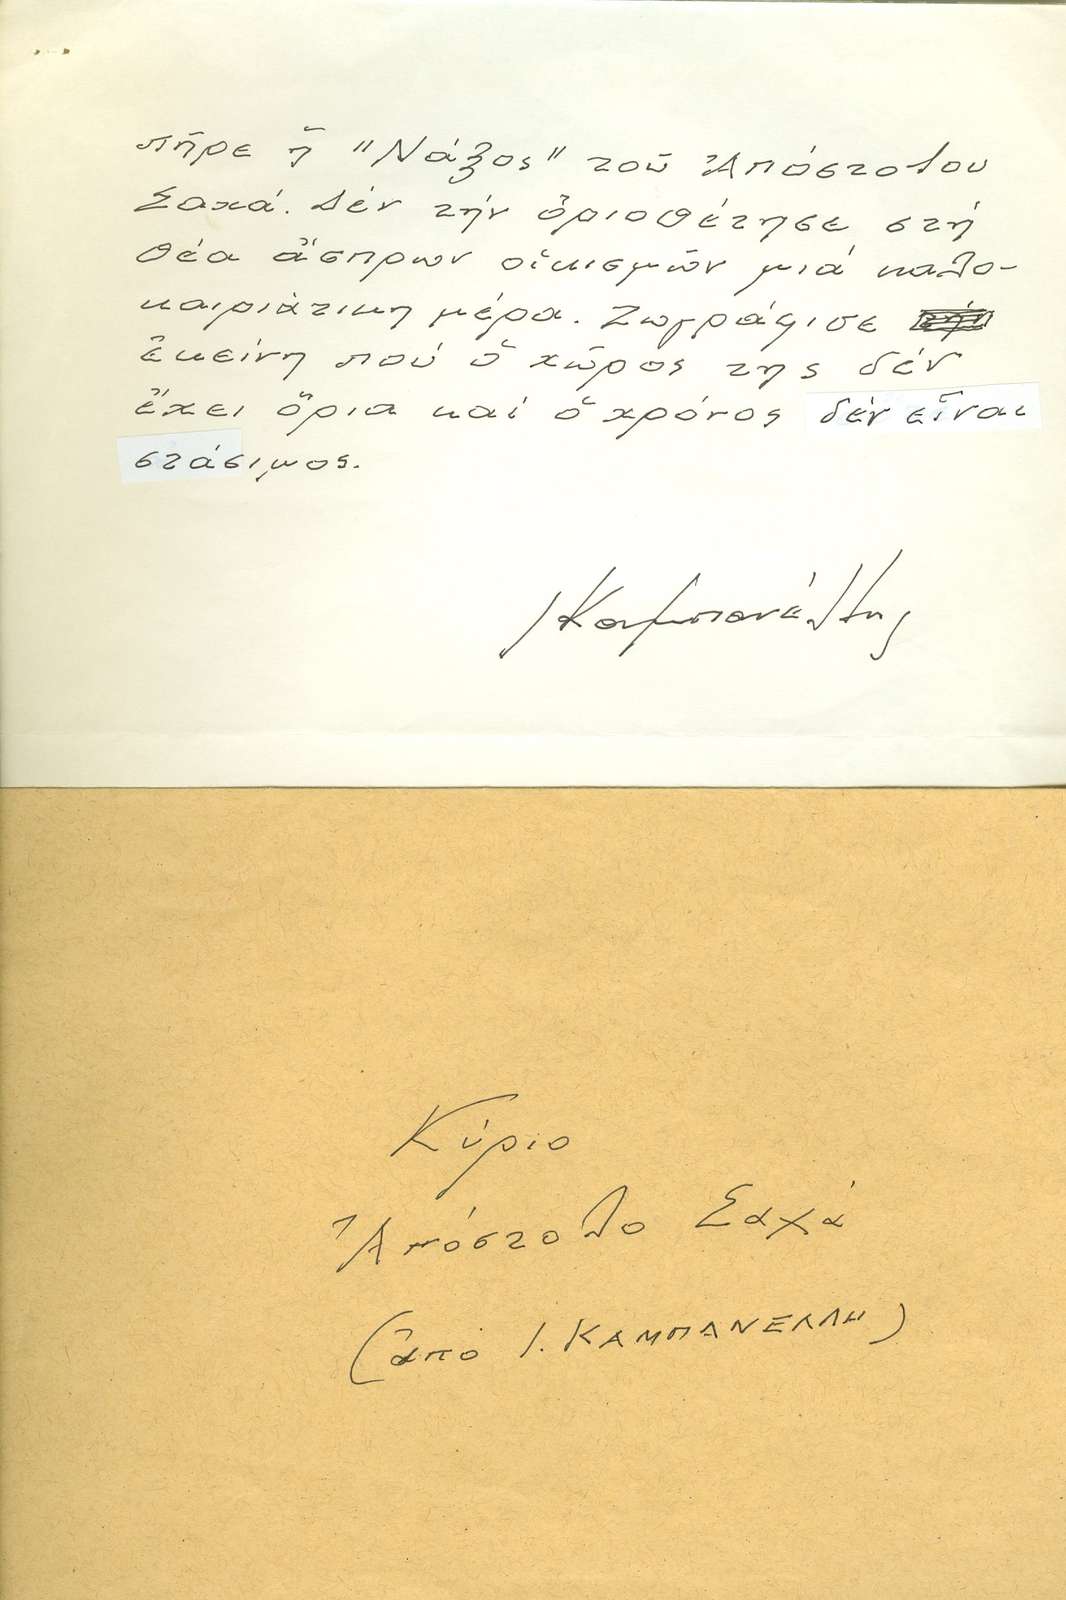 πῆρε ἡ "Νάξος" τοῦ Ἀπόστολου
Σαχά. Δέν τήν ὁριοθέτησε στή
θέα ἄσπρων οἰκισμῶν μιά καλο-
καιριάτικη μέρα. Ζωγράφισε
ἐκείνη πού ὁ χῶρος της δέν
ἔχει ὅρια καί ὁ χρόνος δέν εἶναι
στάσιμος.
Ι Καμπανέλλης
Κύριο
Ἀπόστολο Σαχά
(ἀπό Ι. ΚΑΜΠΑΝΕΛΛΗ)